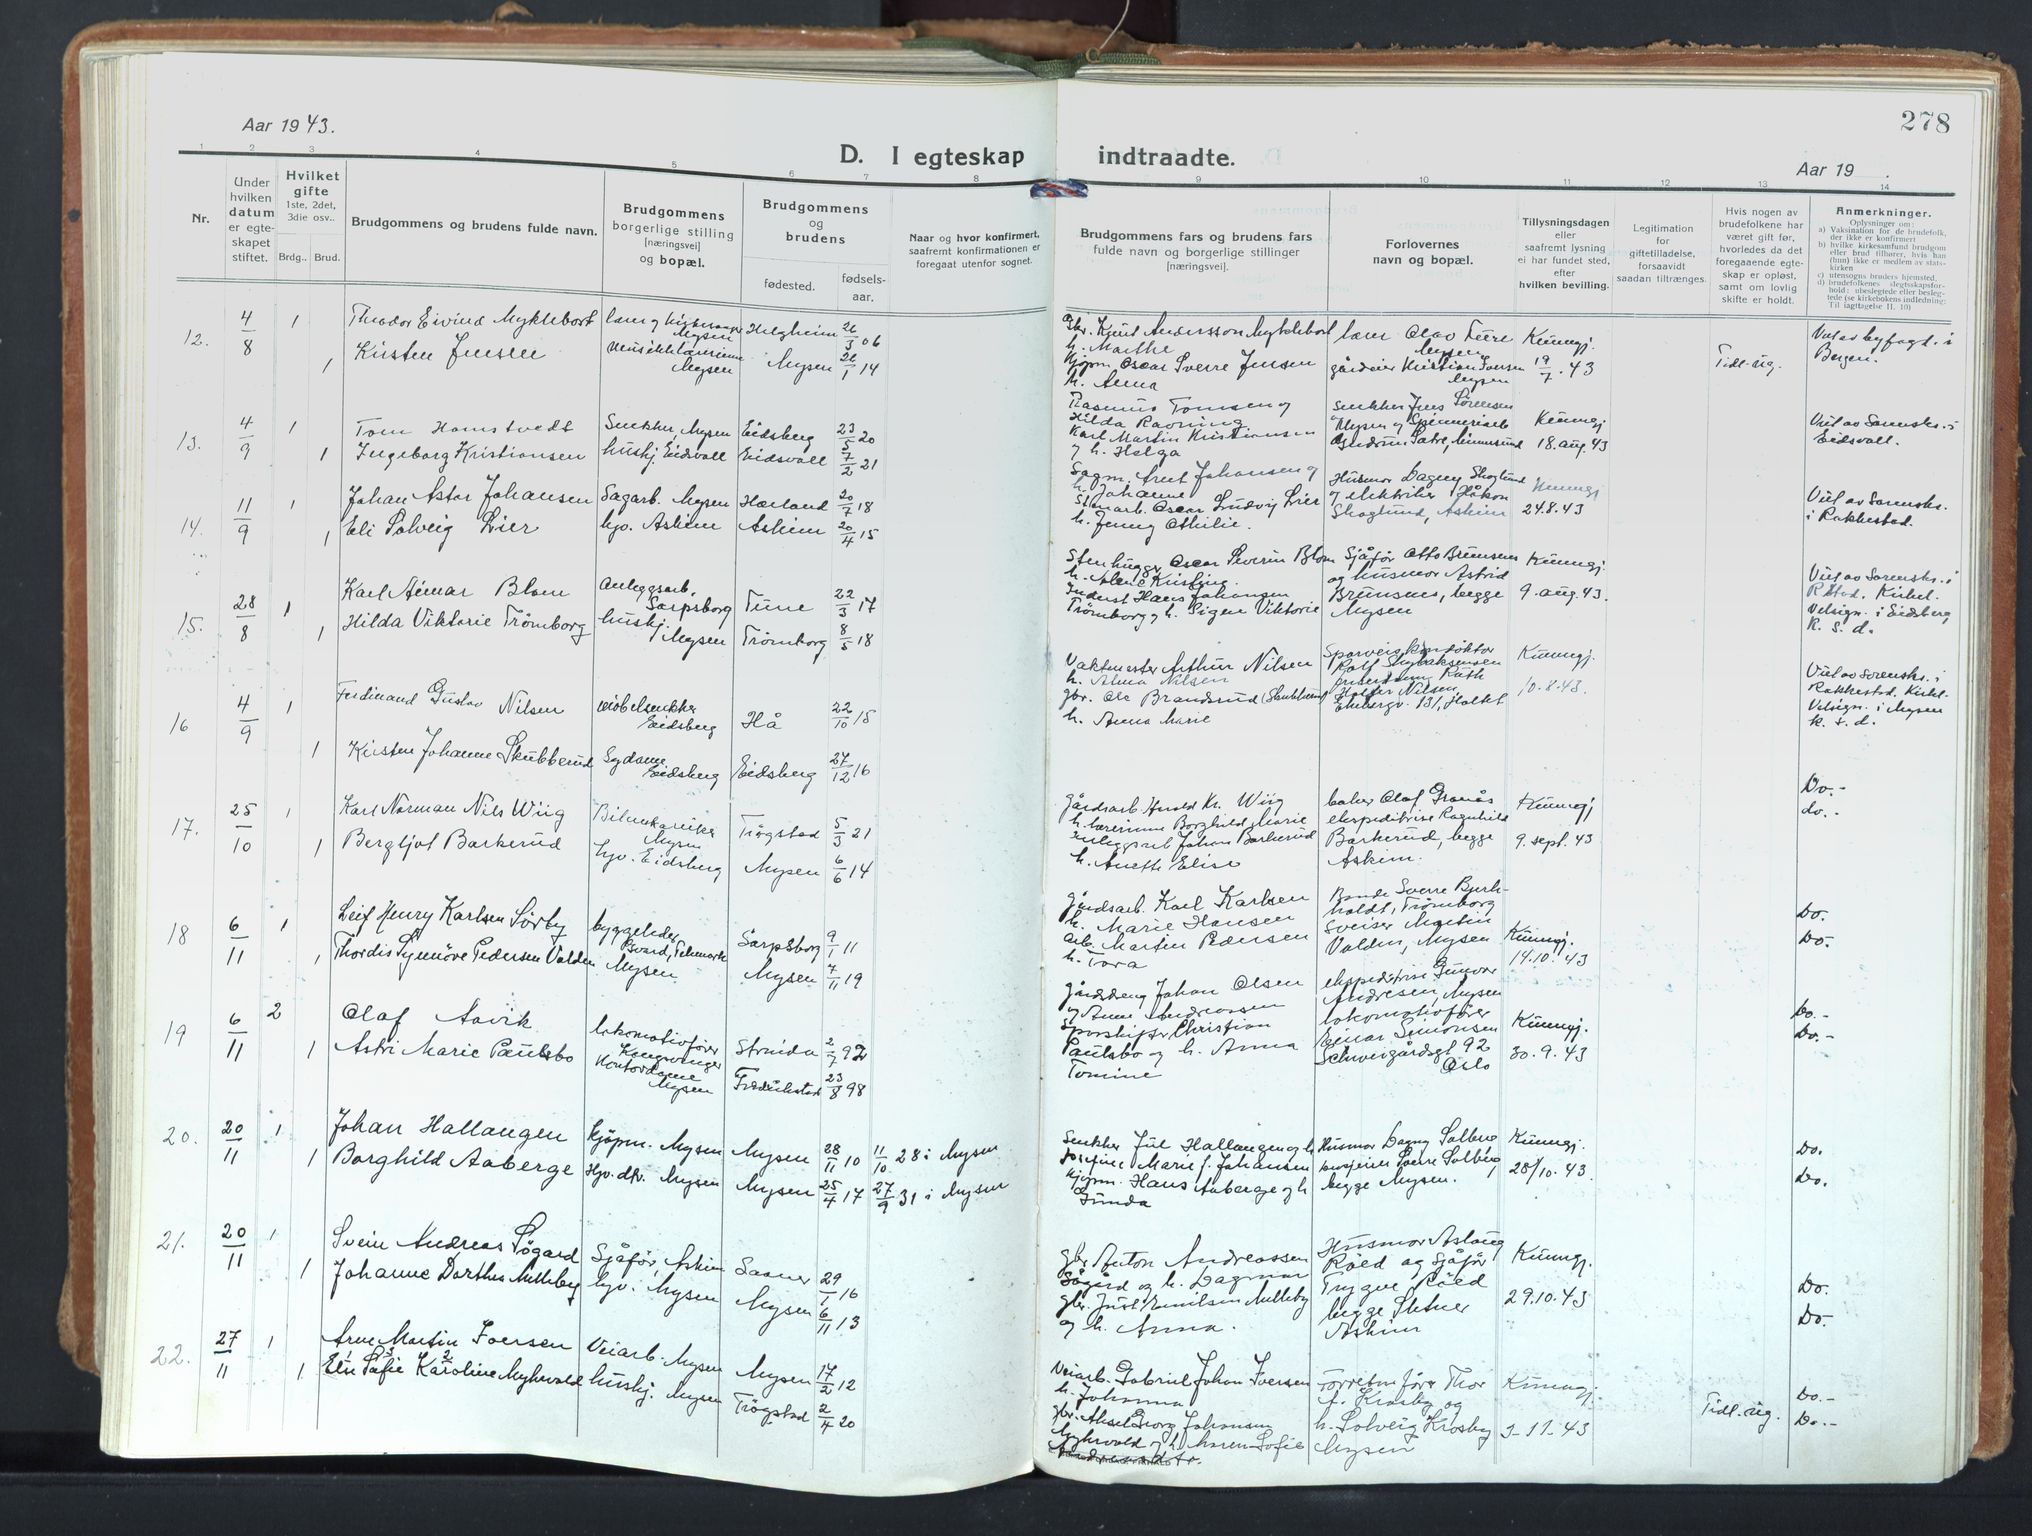 278
Aar 1943.
D. I egteskap indtraadte.
Aar 19 .
1 2 3 4 5 6 7 8 9 10 11 12 13 14
Nr.
Under hvilken datum er egteskapet stiftet.
Hvilket gifte
1ste, 2det, 3die osv..
Brdg.. Brud.
Brudgommens og brudens fulde navn.
Brudgommens borgerlige stilling [næringsvei] og bopæl.
Brudgommens og brudens
fødested. fødsels-aar.
Naar og hvor konfirmert, saafremt konfirmationen er foregaat utenfor sognet.
Brudgommens fars og brudens fars fulde navn og borgerlige stillinger [næringsvei].
Forlovernes navn og bopæl.
Tillysningsdagen eller saafremt lysning ei har fundet sted, efter hvilken bevilling.
Legitimation for giftetilladelse, forsaavidt saadan tiltrænges.
Hvis nogen av brudefolkene har været gift før, hvorledes da det foregaaende egteskap er opløst, samt om lovlig skifte er holdt.
Anmerkninger.
Oplysninger om:
a) Vaksination for de brudefolk, der ikke er konfirmert
b) hvilke kirkesamfund brudgom eller brud tilhører, hvis han (hun) ikke er medlem av statskirken
c) utensogns bruders hjemsted.
d) brudefolkenes slegtsskapsforhold: ubeslegtede eller beslegtede (se kirkebokens indledning: Til iagttagelse II. 10)
12. 4/8 1 Theodor Eivind Myklebost lærer og kirkesanger Mysen Helgheim 26/3 06
1 Kirsten Jensen musikklærerinne Mysen Mysen 26/1 14
gbr. Knut Andersson Myklebost
h. Marthe
Kjøpm. Oscar Sverre Jensen
h. Anna
lærer Olav Mysen
gårdeier Kristian Iversen Mysen
Kunngj. 19/7. 43
Tidl. ug.
Viet av byfogd. i Bergen.
13. 4/9 1 Tom Homstvedt Snekker Mysen Eidsberg 23/5 20
1 Ingeborg Kristiansen hushj. Eidsvoll Eidsvoll 7/2 21
Rasmus Tomsen og
Hilda Ravning
Karl Martin Kristiansen
og h. Helga
Snekker Jens Sørensen
Mysen og
Kunngj. 18. aug. 43
Viet av Sorensk. i Eidsvoll.
14. 11/9 1 Johan Astor Johansen Sagarb. Mysen Hærland 20/7 18
1 Eli Solveig Lier hjv. Askim Askim 20/4 15
Sagm. Arnt Johansen og
h. Johanne
Stenarb. Oscar Ludvig Lier
h. Jenny Othilie.
Husmor Dagny Skoglund
og elektriker Håkon
Skoglund, Askim
Kunngj 24.8.43
Viet av Sorensk. i Rakkestad.
15. 28/8 1 Karl Aimar Blom Anleggsarb. Sarpsborg Tune 22/3 17
1 Hilda Viktorie Trømborg hushj. Mysen Trømborg 8/5 18
Stenhugger Oscar Severin Blom
h. Alene Kristine.
Inderst Hans Johansen
Trømborg og h. Signe Viktorie
Sjåfør Otto Brunsnes
og husmor Astrid
Brunsnes, begge
Mysen
Kunngj. 9. aug. 43.
Viet av Sorensk. i
R.stad. Kirkel.
Velsign. i Eidsberg
K. s. d.
16 4/9 1 Ferdinand Gustav Nilsen møbelsnekker Eidsberg Hå 22/10 15
1 Kirsten Johanne Skubberud Sydame Eidsberg Eidsberg 27/12 16
Vaktmester Arthur Nilsen
h. Alma Nilsen
gbr. Ole Brandsrud (Skubberud)
h. Anna Marie
Sporveiskonduktør
Rolf
Ruth
Nilsen,
Kunngj. 10.8.43.
Viet av Sorensk. i
Rakkestad. Kirkel.
Velsign. i Mysen
k. s. d.
17. 25/10 1 Karl Norman Nils Wiig Mysen Trøgstad 5/3 21
1 Bergljot Barkerud hjv. Eidsberg Mysen 6/6 14
Gårdsarb. Harald Kr. Wiig
h. lærerinne Borghild Marie
Anleggsarb Johan Barkerud
h. Anette Elise
baker Olaf Granås
ekspeditrise Ragnhild
Barkerud, begge
Askim.
Kunngj 9. sept. 43
Do.-
do.-
18 6/11 1 Leif Henry Karlsen Sørby byggeleder Telemark Sarpsborg 9/1 11
1 Thordis Synnøve Pedersen Valden Mysen Mysen 7/11 19
Gårdsarb. Karl Karlsen
h. Marie Hansen
Arb. Martin Pedersen
h. Tora
Bonde Sverre Bjerk-
holdt, Trømborg
Sveiser Martin
Valden, Mysen
Kunngj. 14.10. 43
Do.
Do.
19 6/11 2 Olaf Aavik lokomotivfører Kongsvinger Strinda 2/7 92
1 Astri Marie Paulsbo Kontordame Mysen Fredrikstad 23/8 98
Gårdsdreng Johan Olsen
og Anne Andreassen
Sporskifter Christian
Paulsbo og h. Anna
Tomine
ekspeditrise Gunvor
Andresen, Mysen
lokomotivfører
Einar Simonsen
Schweigårdsgt 92
Oslo
Kunngj. 30. 9. 43
Do.-
Do.-
20. 20/11 1 Johan Hallangen kjøpm. Mysen Mysen 28/11 10 11/10 28 i Mysen
1 Borghild Aaberge Hjv. dtr. Mysen Mysen 25/4 17 27/9 31 i Mysen
Snekker Jul Hallangen og h
Josefine Marie f. Johansen
Kjøpm. Hans Aaberge og h
Gunda
Husmor Dagny Solberg
Sverre Solberg
begge Mysen.
Kunngj. 28/10. 43
Do.
Do.
21. 20/11 1 Svein Andreas Søgard Sjåfør, Askim Saaner 29/1 16
1 Johanne Dorthea Melleby hjv. Mysen Mysen 6/11 13
gbr. Anton Andreassen
Søgård og h. Dagmar
gbr. Just Emilsen Melleby
og h. Anna.
Husmor Aslaug
Røed og sjåfør
Trygve Røed
begge
Askim
Kunngj. 29.10. 43
Do.
Do.
22. 27/11 1 Arne Martin Iversen Veiarb. Mysen Mysen 17/2 12
1 Elin Sofie Karoline Myhrvold hushj. Mysen Trøgstad 2/4 20
Veiarb. Gabriel Johan Iversen
h. Johanna
gbr. Aksel Georg Johansen
Myhrvold og h Maren Sofie
Forretn.fører Thor
f. Krosby og
h. Solveig Krosby
Mysen
Kunngj. 3-11-43
Tidl. ug.
Do.-
Do.-